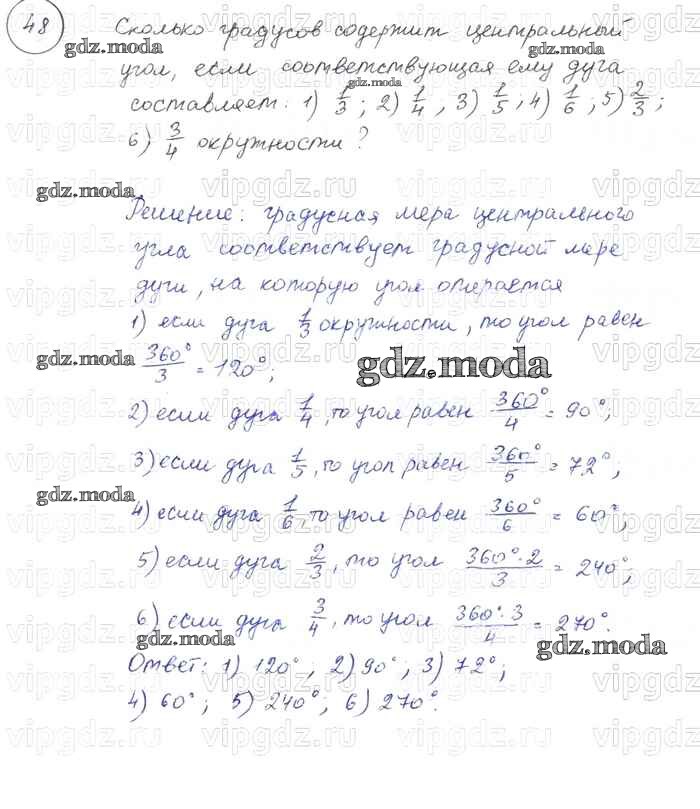 48 Сколько градусов содержит центральный
gdz.moda gdz.moda
угол, если соответствующая ему дуга
gdz.moda
составляет: 1) 1/3; 2) 1/4, 3) 1/5; 4) 1/6; 5) 2/3;
6) 3/4 окружности?
gdz.moda
Решение: градусная мера центрального
угла соответствует градусной мере
дуги, на которую угол опирается
1) если дуга 1/3 окружности, то угол равен
gdz.moda 360°/3 = 120°; gdz.moda
2) если дуга 1/4, то угол равен 360°/4 = 90°;
3) если дуга 1/5, то угол равен 360°/5 = 72°;
gdz.moda
4) если дуга 1/6, то угол равен 360°/6 = 60°;
5) если дуга 2/3, то угол 360°·2/3 = 240°;
6) если дуга 3/4, то угол 360°·3/4 = 270°.
gdz.moda gdz.moda
Ответ: 1) 120°; 2) 90°; 3) 72°;
4) 60°; 5) 240°; 6) 270°.
vipgdz.ru